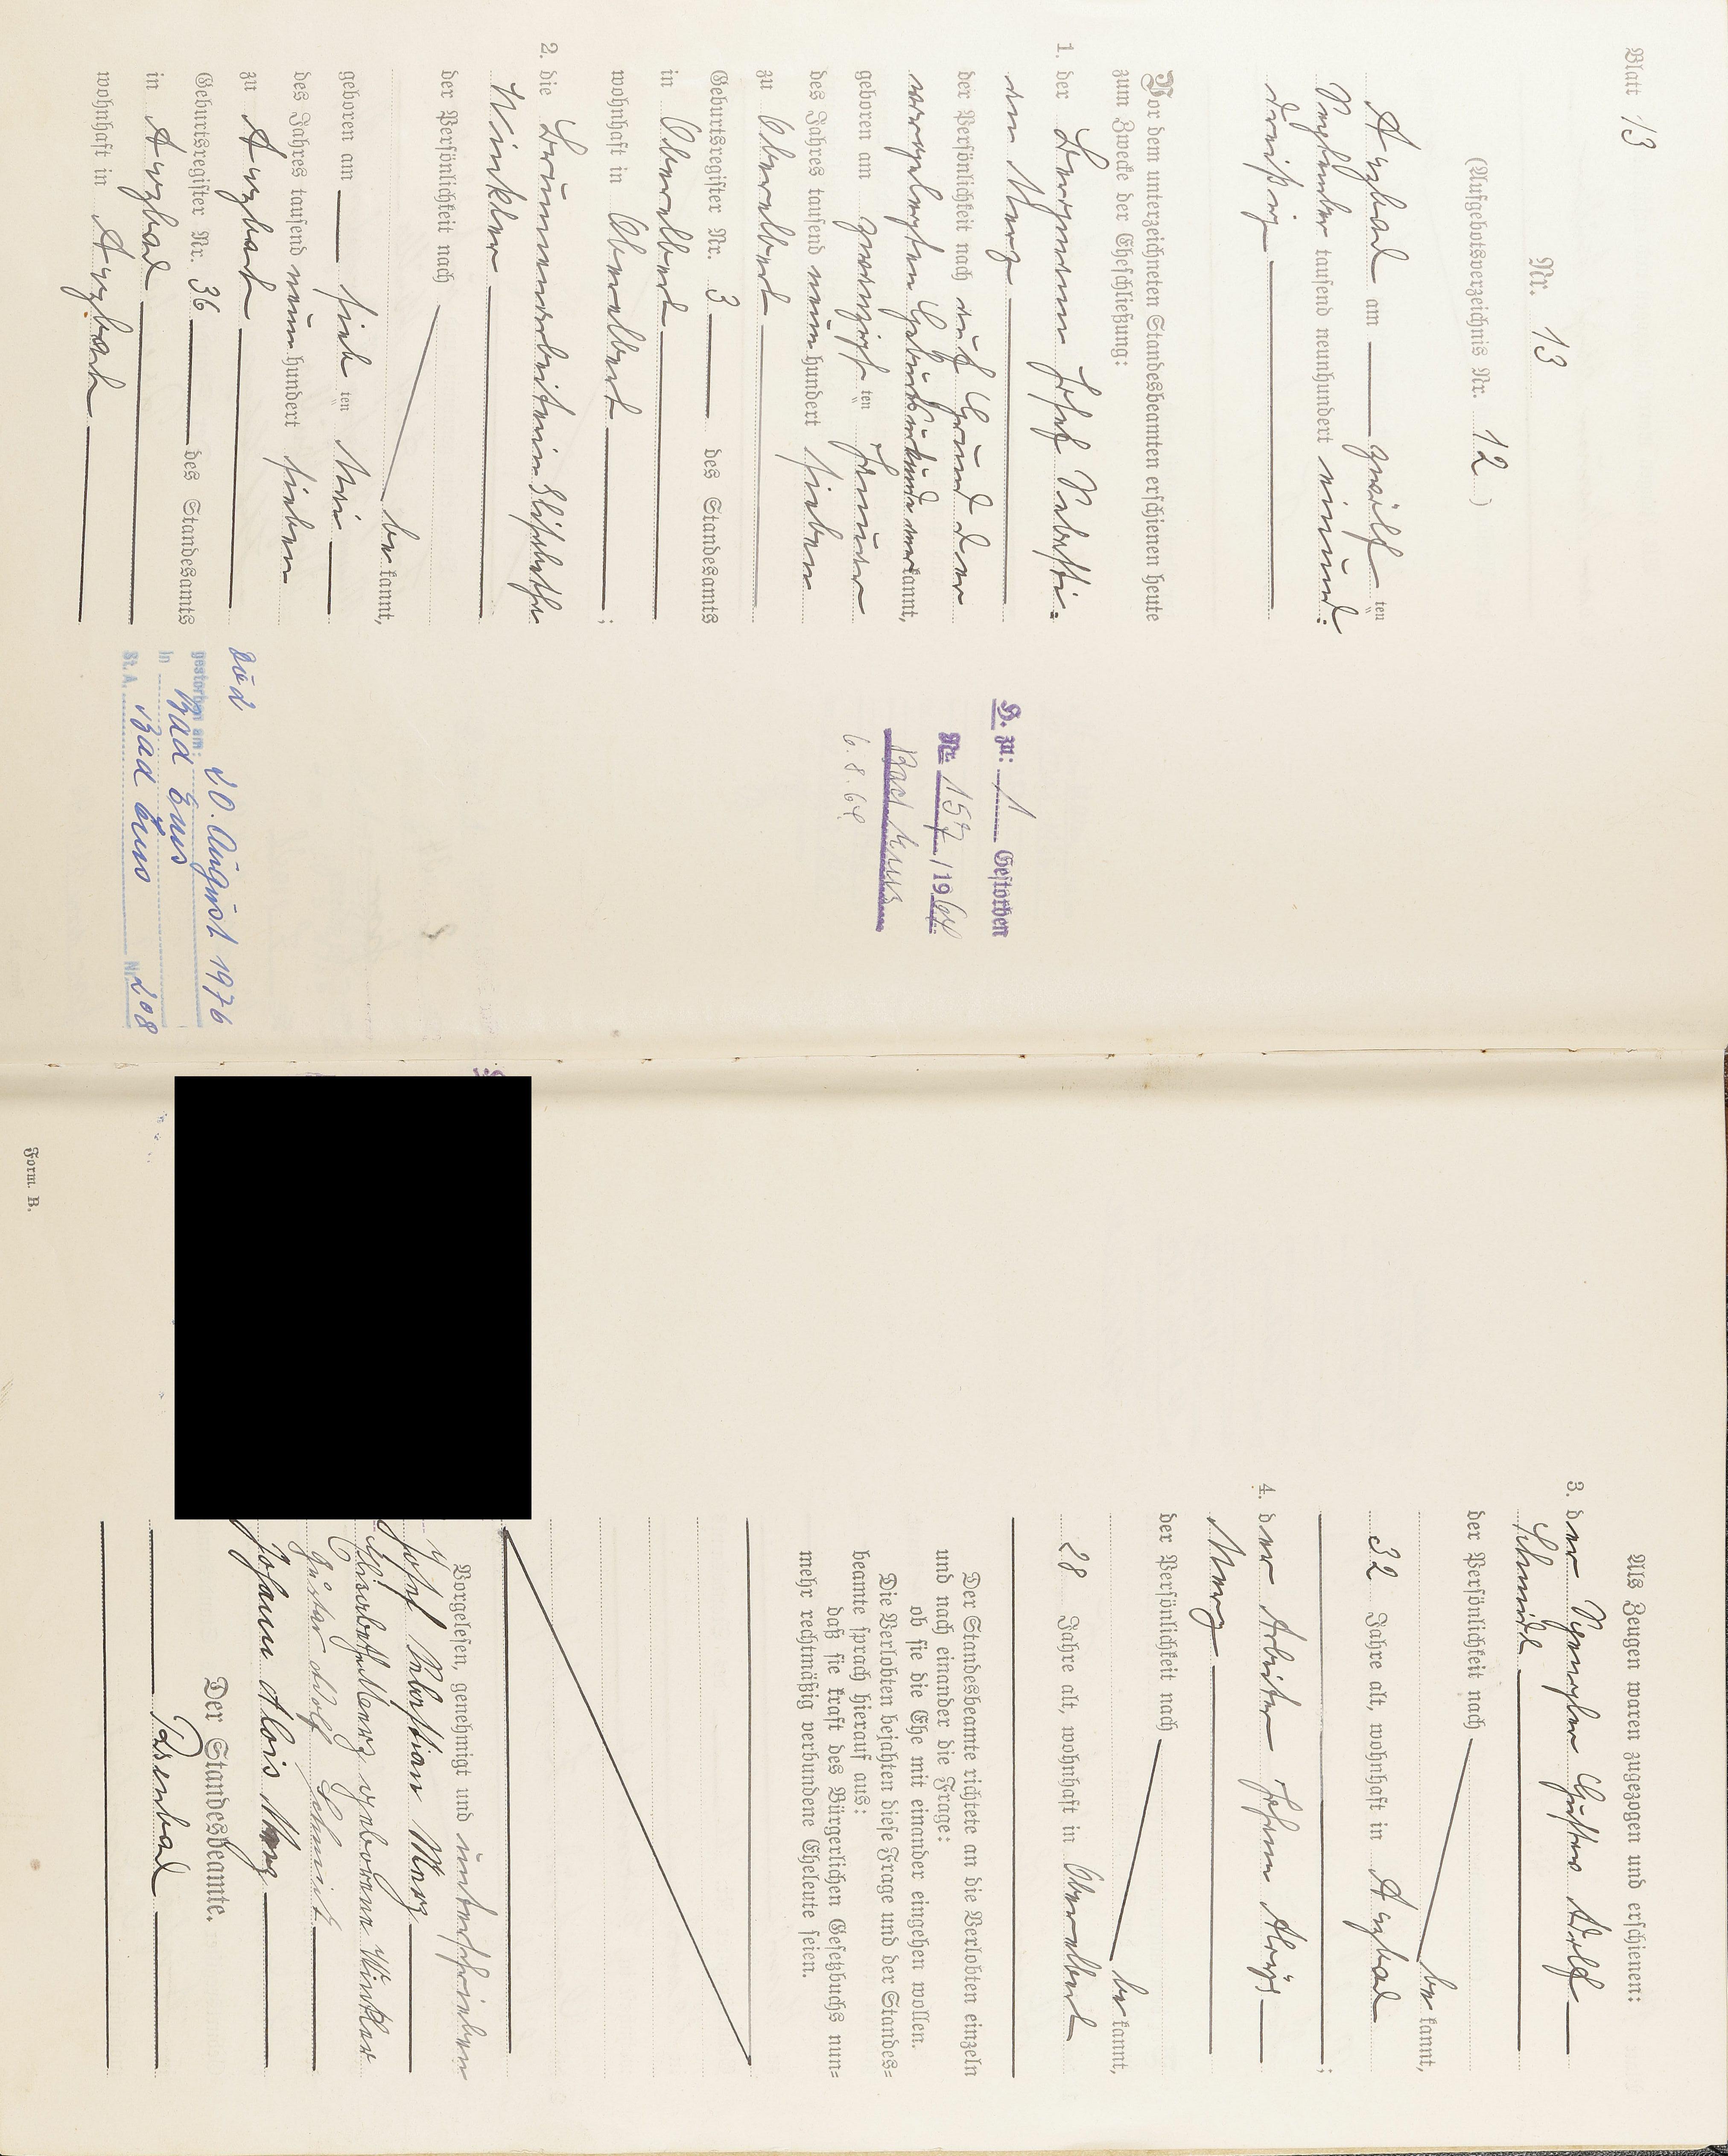 Blatt 13
Nr. 13
(Aufgebotsverzeichnis Nr. 12)
Arzbach am zwölften
September tausend neunhundert einund-
dreißig
Vor dem unterzeichneten Standesbeamten erschienen heute
zum Zwecke der Eheschließung:
1. der Bergmann Josef Sebasti-
an Merz
der Persönlichkeit nach auf Grund der
vorgelegten Geburtsurkunde anerkannt,
geboren am zwanzigsten Januar
des Jahres tausend neunhundert sieben
zu Oberelbert
Geburtsregister Nr. 3 des Standesamts
in Oberelbert
wohnhaft in Oberelbert ;
2. die Brunnenarbeiterin Elisabetha
Winkler
der Persönlichkeit nach
bekannt,
geboren am ten Mai
des Jahres tausend neunhundert sieben
zu Arzbach
Geburtsregister Nr. 36 des Standesamts
in Arzbach
wohnhaft in Arzbach
H. zu: 1 Gestorben
Nr. 157/1964
Bad Ems
6.8.64
gestorben am: 20. August 1976
in Bad Ems
St.A. Bad Ems Nr. 208
Als Zeugen waren zugezogen und erschienen:
3. der Gustav Adolf
Schmidt
der Persönlichkeit nach
bekannt,
32 Jahre alt, wohnhaft in Arzbach
;
4. der Arbeiter Johann Alois
Merz
der Persönlichkeit nach
bekannt,
28 Jahre alt, wohnhaft in Oberelbert
Der Standesbeamte richtete an die Verlobten einzeln
und nach einander die Frage:
ob sie die Ehe mit einander eingehen wollen.
Die Verlobten bejahten diese Frage und der Standes=
beamte sprach hierauf aus:
daß sie kraft des Bürgerlichen Gesetzbuchs nun=
mehr rechtmäßig verbundene Eheleute seien.
Vorgelesen, genehmigt und unterschrieben
Josef Sebastian Merz
Elisabetha Merz geborene Winkler
Gustav Adolf Schmidt
Johann Alois Merz
Der Standesbeamte.
Form. B.